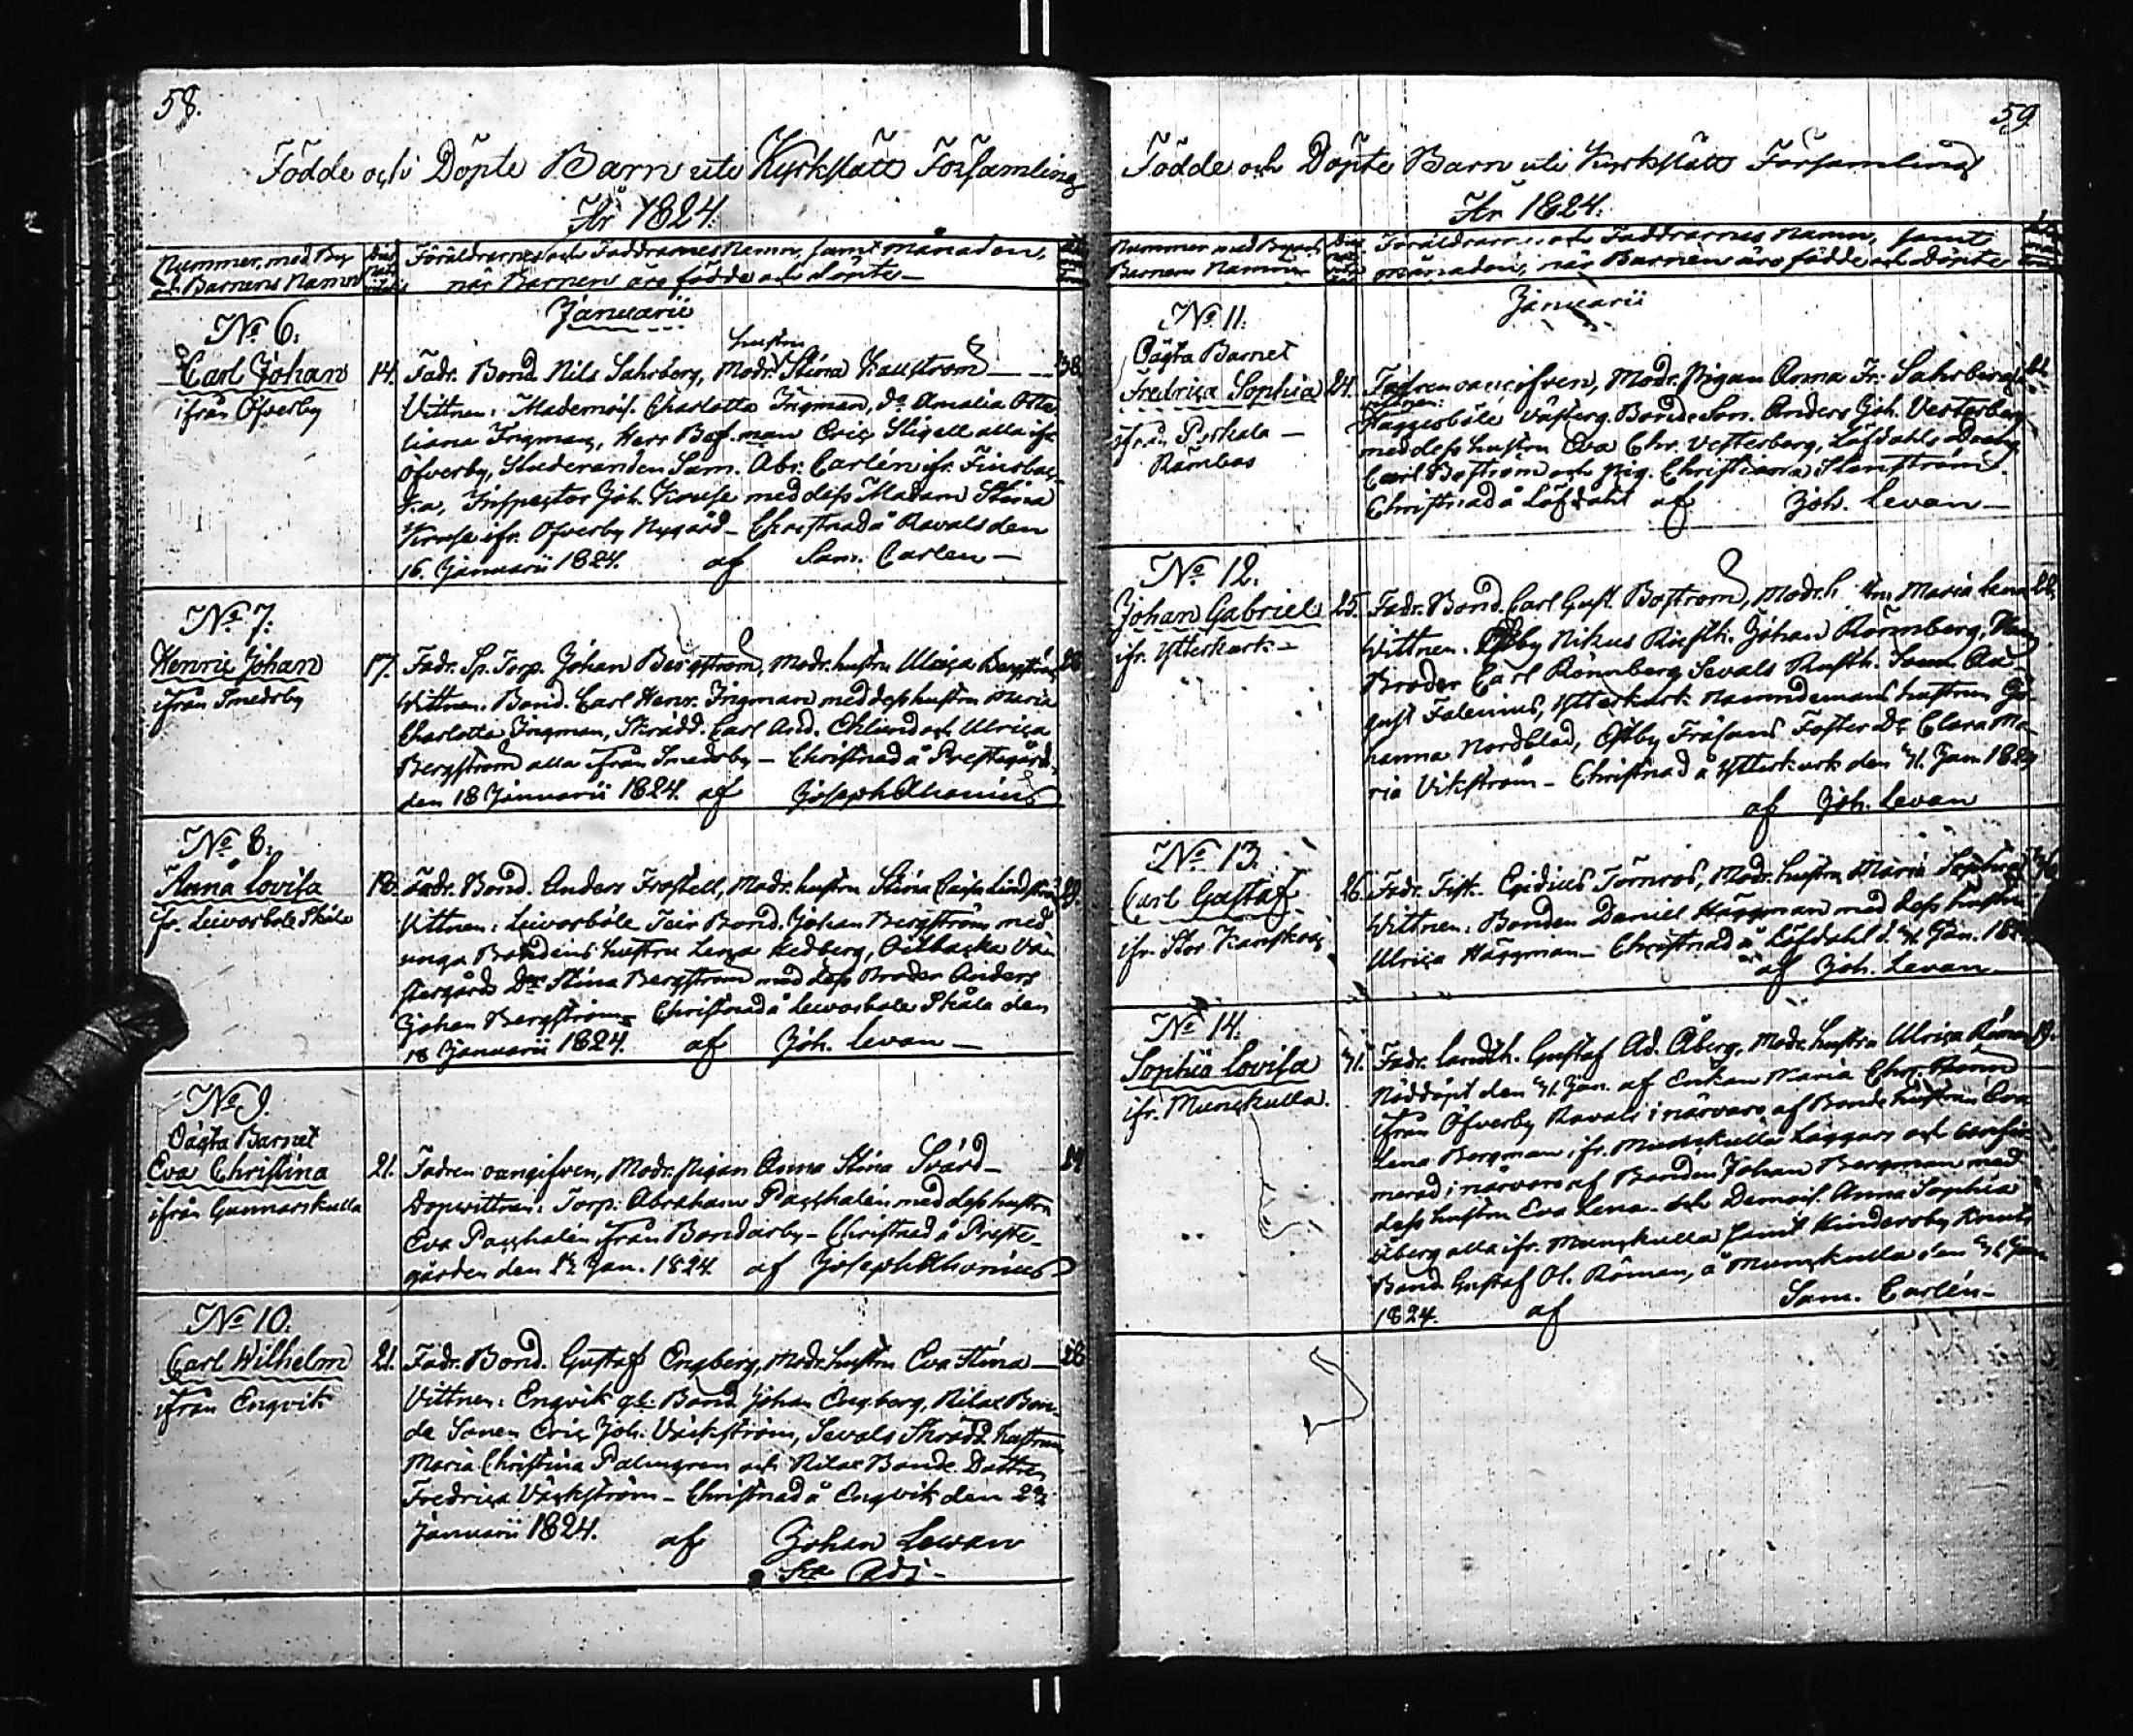 58.
Födde och Döpte Barn uti Kyrkslätts Församling
År 1824.
Nummer, med By
och Barnens Namn
Föräldrarnes och Faddrarnes Namn, samt månaden,
när Barnen äro födde och döpte
Januarii
No 6.
Carl Johan
ifrån Öfverby
14. Fadr. Bond. Nils Sahrberg, Modr. hustru Stina Kauström — 38.
Vittnen: Mademois. Charlotta Ingman, do Amalia
liana Ingman, Herr Bef.man Eric Stigell alla ifr.
Öfverby, Studeranden Sam. Abr. Carlén ifr. Finsbac-
ka, Inspector Joh. Kruse med dess Madam Stina
Kruse ifr. Öfverby Nygård – Christnad å Ravals den
16. Januarii 1824. af Sam. Carlen —
No 7.
Henric Johan
ifrån Smedsby
17. Fadr. Sp. Torp. Johan Bergström, Modr. hustru Ulrica Bergström
Wittnen. Bond. Carl Henr. Ingman med dess hustru Maria
Charlotta Ingman, Skrädd. Carl And. Öhlund och Ulrica
Bergström alla ifrån Smedsby – Christnad å Prestegård.
den 18 Januarii 1824. af Joseph Alhonius
No 8.
Anna Lovisa
fr. Leivosböle Skåla
18. Fadr. Bond. Anders Frostell, Modr. hustru Stina Caisa Lindström 29.
Vittnen: Leivosböle Bond. Johan Bergström med
unga Bondens hustru Lena Hedberg, Oitbacka Vä-
stergårds Stina Bergström med dess Broder Anders
Johan Bergström – Christnad å Leivosböle Skåla den
18 Januarii 1824. af Joh. Levan —
No 9.
Oägta Barnet
Eva Christina
ifrån Gunnarskulla
21. Fadren oangifven, Modr. Pigan Anna Stina Svärd –
Dopvittnen: Torp. Abraham Paqvalén med dess hustru
Eva Paqvalén ifrån Bondarby – Christnad å Preste-
gården den Jan. 1824 af Joseph Alhonius
No 10.
Carl Wilhelm
ifrån Engvik
21. Fadr. Bond. Gustaf Engberg, Modr. hustru Eva Stina — 26
Vittnen: Engvik gl. Bond Johan Engberg, Nilas Bon-
de Sonen Eric Joh. Väckström, Sevals Skrädd. hustrun
Maria Christina Palmgren och Nilas Bonde Dottren
Fredrica Väckström – Christnad å Engvik den
Januarii 1824. af Johan Levan
59
Födde och Döpte Barn uti Kyrkslätts Församling
År 1824.
Nummer med Byars
Barnens Namn
Föräldrarnes och Faddrarnes namn, samt
månaden, när Barnen äro födde och döpte
Januarii
No 11.
Oägta Barnet
Fredrica Sophia
ifrån Perkala –
Rämbas
24. Fadren oangifven, Modr. Pigan Anna Fr. Sahrberg
Vittnen:
Haggesböle Västerg. Bonde Son. Anders Joh. Vesterberg
med dess hustru Eva Chr. Vesterberg, Löfdahls Dräng
Carl Boström och Pig. Christianna Stenström.
Christnad å Löfdahl af Joh. Levan —
No 12.
Johan Gabriel
ifr. Ytterkurk –
25. Fadr. Bond. Carl Gust. Boström, Modr. h. Maria Lena 22.
Wittnen: Österby Nikus Rusth. Johan Rönnberg,
Broder Carl Rönnberg Sevals Rusth. Son Au-
gust Falenius, Ytterkurk Nämndemans hustrun Jo-
hanna Nordblad, Österby Fräsans Foster Dr. Clara Ma-
ria Vikström – Christnad å Ytterkurk den Jan 1824
af Joh. Levan
No 13.
Carl Gustaf
ifr. Stor Kanskog
26. Fadr. Fisk. Egidius Törnros, Modr. hustru Maria
Wittnen: Bonden Daniel Häggman med dess hustru
Ulrica Häggman – Christnad å Löfdahl d. Jan. 1824
af Joh. Levan
No 14.
Sophia Lovisa
ifr. Munckulla.
Fadr. Gustaf Ad. Åberg, Modr. hustru Ulrica Röman 19.
Nöddöpt den Jan. af Enkan Maria Chr.
ifrån Öfverby Ravals i närvaro af Bonde hustrun Eva
Lena Bergman ifr. Munckulla Läggars och confir-
merad i närvaro af Bonden Johan Bergman med
dess hustru Eva Lena och Demois. Anna Sophia
Åberg alla ifr. Munckulla samt Hindersby Knuts
Bond. Gustaf Ol. Röman, å Munckulla den Jan
1824. af Sam. Carlén –